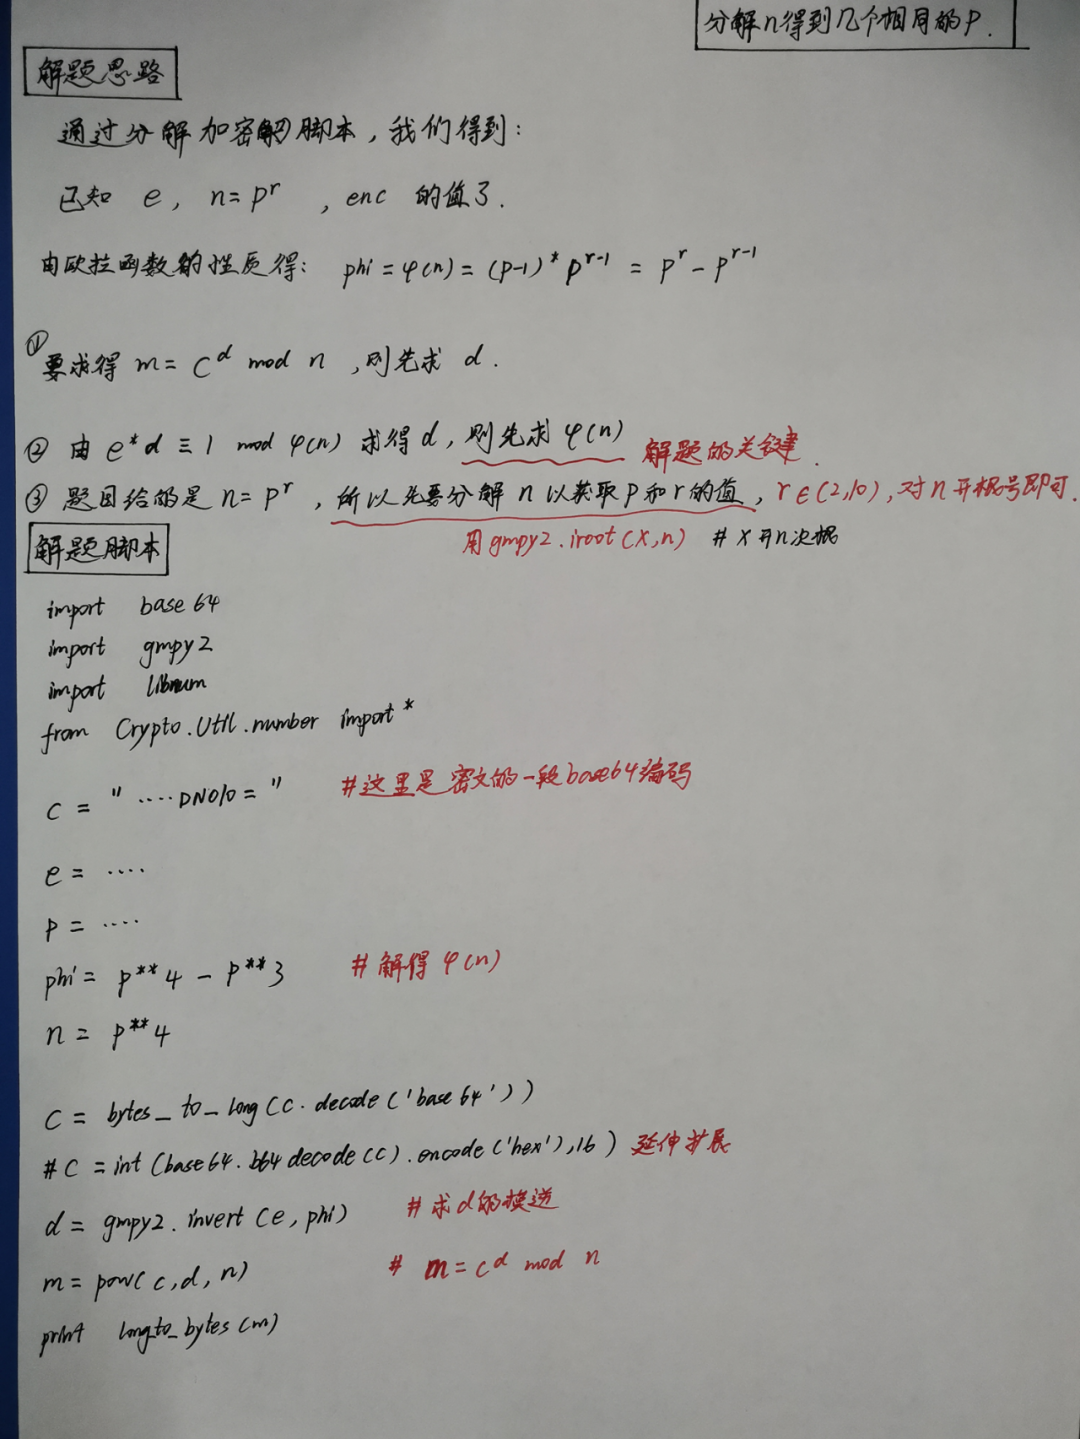 分解n得到几个相同的p.
解题思路
通过分解加密脚本，我们得到：
已知 e, n=p^r , enc 的值了.
由欧拉函数的性质得： phi = φ(n) = (p-1)*p^{r-1} = p^r - p^{r-1}
① 要求得 m = c^d mod n ,则先求 d.
② 由 e*d ≡ 1 mod φ(n) 求得d, 则先求 φ(n) 解题的关键.
③ 题目给的是 n = p^r , 所以先要分解 n 以获取 p 和 r 的值, r∈(2,10), 对 n 开根号即可.
用 gmpy2.iroot(x,n) # x开n次根
解题脚本
import base64
import gmpy2
import libnum
from Crypto.Util.number import *
c = "....DNO10="  #这里是密文的一段base64编码
e = ....
p = ....
phi = p**4 - p**3  # 解得 φ(n)
n = p**4
c = bytes_to_long(c.decode('base64'))
# c = int(base64.b64decode(c).encode('hex'),16) 延伸扩展
d = gmpy2.invert(e,phi)  # 求d的模逆
m = pow(c,d,n)  # m = c^d mod n
print long_to_bytes(m)